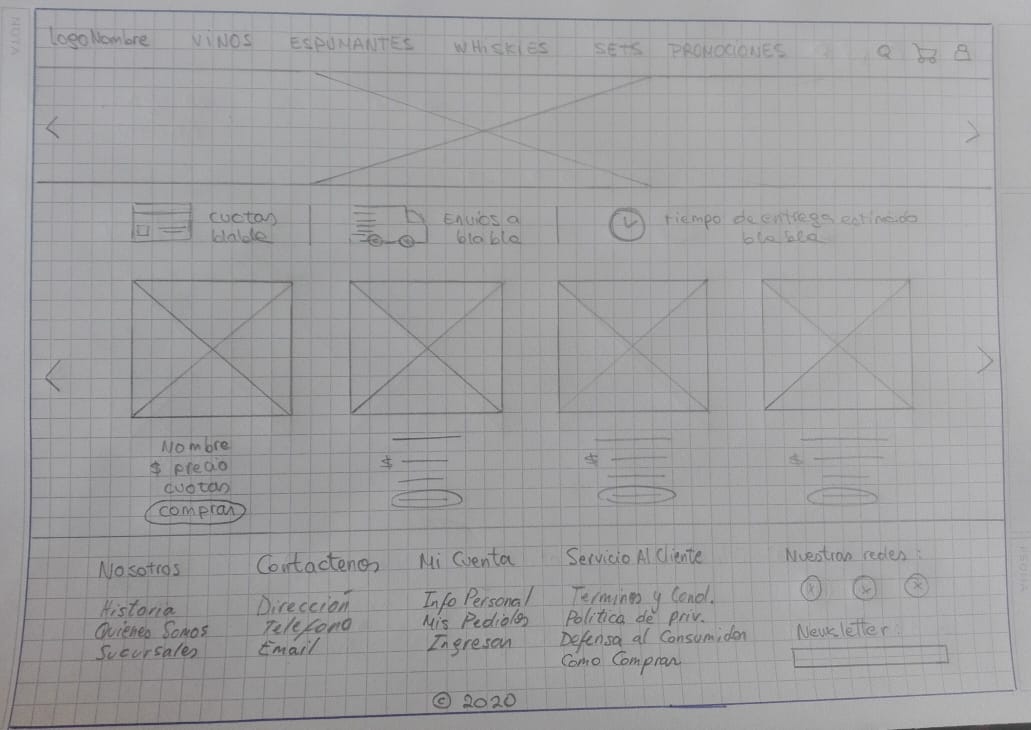 LogoNombre VINOS ESPUMANTES WHISKIES SETS PROMOCIONES
< >
cuotas
blabla
Envios a
bla bla
tiempo de entrega estimado
bla bla
< >
Nombre
$ precio
cuotas
comprar
$
$
$
Nosotros
Historia
Quienes Somos
Sucursales
Contactenos
Dirección
Telefono
Email
Mi Cuenta
Info Personal
Mis Pedidos
Ingresar
Servicio Al Cliente
Terminos y Cond.
Politica de priv.
Defensa al Consumidor
Como Comprar
Nuestras redes:
Newsletter:
© 2020